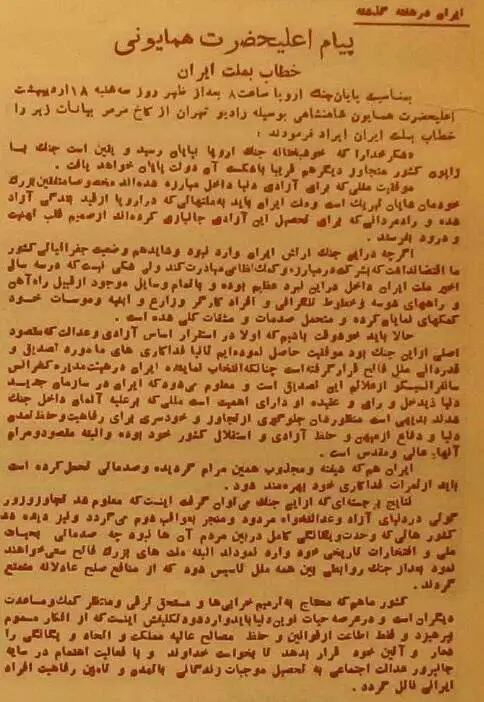 ایران در هفته گذشته
پیام اعلیحضرت همایونی
خطاب بملت ایران
بمناسبت پایان جنك اروپا ساعت ۸ بعد از ظهر روز سه شنبه ۱۸ اردیبهشت
اعلیحضرت همایون شاهنشاهی بوسیله رادیو تهران از کاخ مرمر بیانات زیر را
خطاب بملت ایران ایراد فرمودند :
«شکر خدا را که خوشبختانه جنك اروپا بپایان رسید و یقین است جنك با
ژاپون کشور متجاوز دیگر هم قریباً باشکست آن دولت پایان خواهد یافت .
موفقیت مللی که برای آزادی دنیا داخل مبارزه شده اند مخصوصاً متفقین بزرك
خودمان شایان تبریك است و ملت ایران باید به ملتهائی که در اروپا از قید بندگی آزاد
شده و رادمردانی که برای تحصیل این آزادی جانبازی کرده اند از صمیم قلب تهنیت
و درود بفرستد .
اگرچه در این جنك ارتش ایران وارد نبود و شاید هم وضعیت جغرافیائی کشور
ما اقتضا نداشت که بشرکت در مبارزه و کمك نظامی مبادرت کند ولی شکی نیست که در سه سال
اخیر ملت ایران داخل در این نبرد عظیم بوده و با تمام وسایل موجود از قبیل راه آهن
و راههای شوسه و خطوط تلگرافی و افراد کارگر و زارع و ابنیه و موسسات خود
کمکهای نمایان کرده و متحمل صدمات و مشقات کلی شده است .
حالا باید خوشوقت باشیم که اولا در استقرار اساس آزادی و عدالت که مقصود
اصلی از این جنك بود موفقیت حاصل نموده ایم ثانیاً فداکاری های ما مورد تصدیق و
قدردانی ملل فاتح قرار گرفته است چنانکه انتخاب نماینده ایران در هیئت مدیره کنفرانس
سانفرانسیسکو از علائم این تصدیق است و معلوم می شود که ایران در سازمان جدید
دنیا ذیدخل و رای و عقیده او دارای اهمیت است مللی که بر علیه آلمان داخل جنك
شدند بدیهی است منظورشان جلوگیری از تجاوز و خودسری برای رفاهیت و حفظ تمدن
دنیا و دفاع از میهن و حفظ آزادی و استقلال کشور خود بوده و البته مقصود و مرام
آنها، عالی و مقدس است .
ایران هم که شیفته و مجذوب همین مرام گردیده و صدماتی تحمل کرده است
باید از ثمرات فداکاری خود بهره مند شود .
نتایج برجسته ای که از این جنك می توان گرفت اینست که معلوم شد تجاوز و زور
گوئی در دنیای آزاد و عدالتخواه مردود و منجر بعواقب شوم می گردد و نیز دیده شد
کشور هائی که وحدت و یگانگی کامل در بین مردم آن ها نبود چه صدماتی بحیات
ملی و افتخارات تاریخی خود وارد نمودند البته ملت های بزرك فاتح سعی خواهند
نمود بعد از جنك روابطی بین همه ملل تاسیس شود که از منافع صلح عادلانه متمتع
گردند .
کشور ما هم که محتاج به ترمیم خرابی ها و مستحق ترقی و منتظر کمك و مساعدت
دیگران است و در عرصه حیات نوین دنیا باید وارد شود تکلیفش اینست که از افکار مسموم
بپرهیزد و فقط اطاعت از قوانین و حفظ مصالح عالیه مملکت و اتحاد و یگانگی را
شعار و آئین خود قرار بدهد تا بخواست خداوند و با فعالیت اهتمام در سایه
جانپرور عدالت اجتماعی به تحصیل موجبات زندگانی با تمدن و تامین رفاهیت افراد
ایرانی نائل گردد .